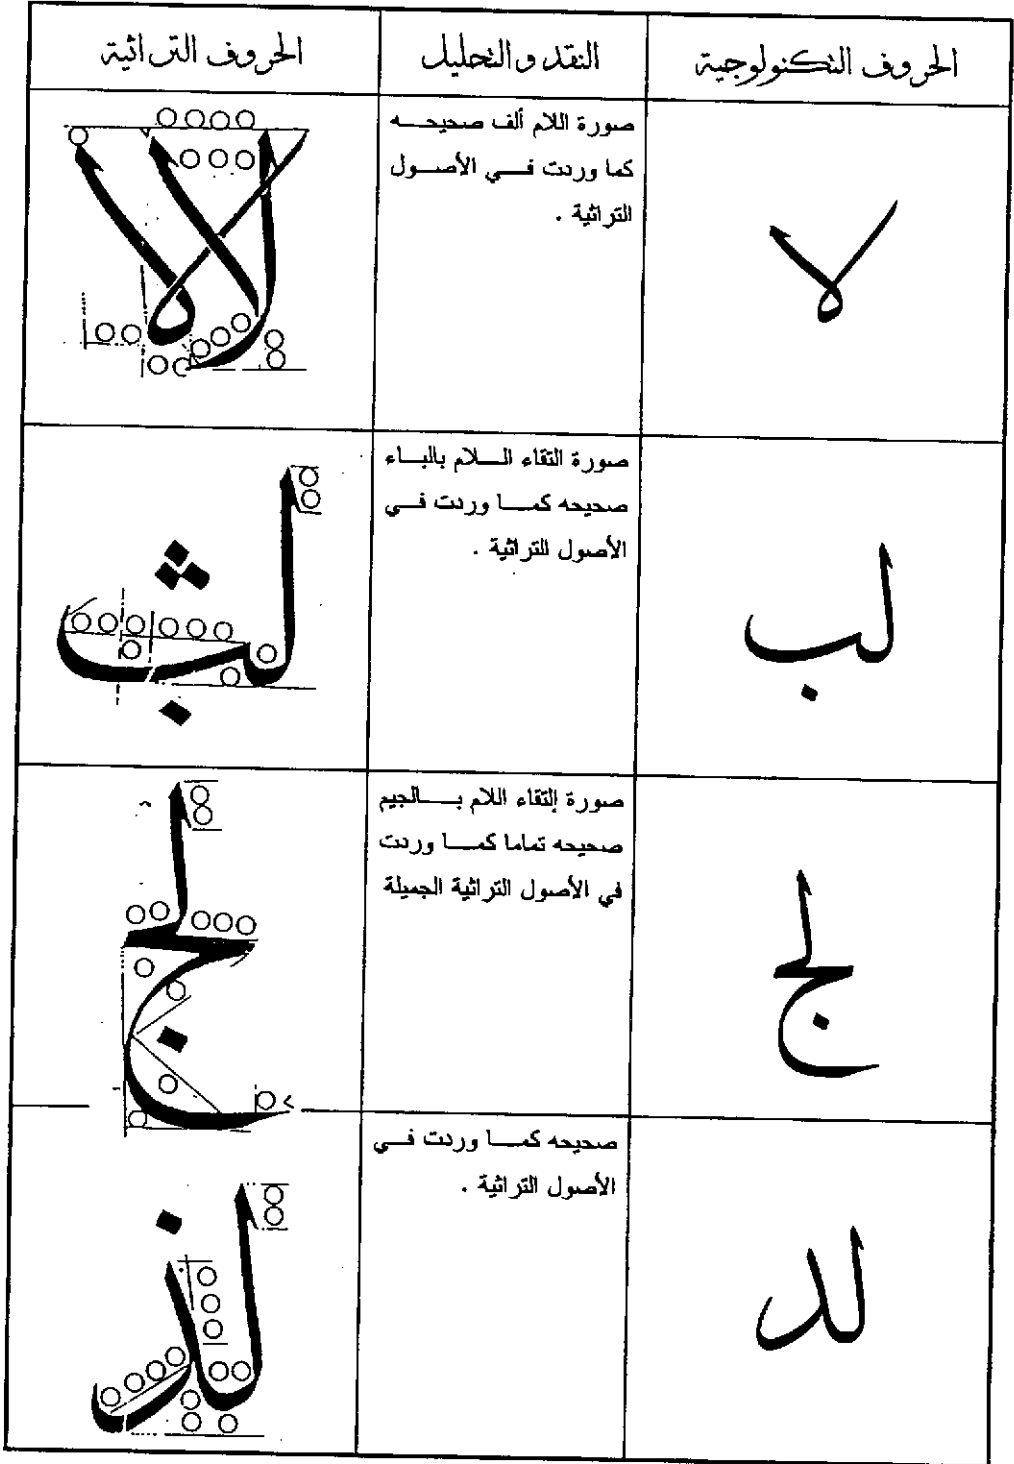 الحروف التكنولوجية
النقد والتحليل
الحروف التراثية
لا
صورة اللام ألف صحيحه
كما وردت في الأصول
التراثية .
لا لا
لب
صورة التقاء اللام بالباء
صحيحه كما وردت في
الأصول التراثية .
لج
صورة إلتقاء اللام بالجيم
صحيحه تماما كما وردت
في الأصول التراثية الجميلة
لج
لد
صحيحه كما وردت في
الأصول التراثية .
لذ